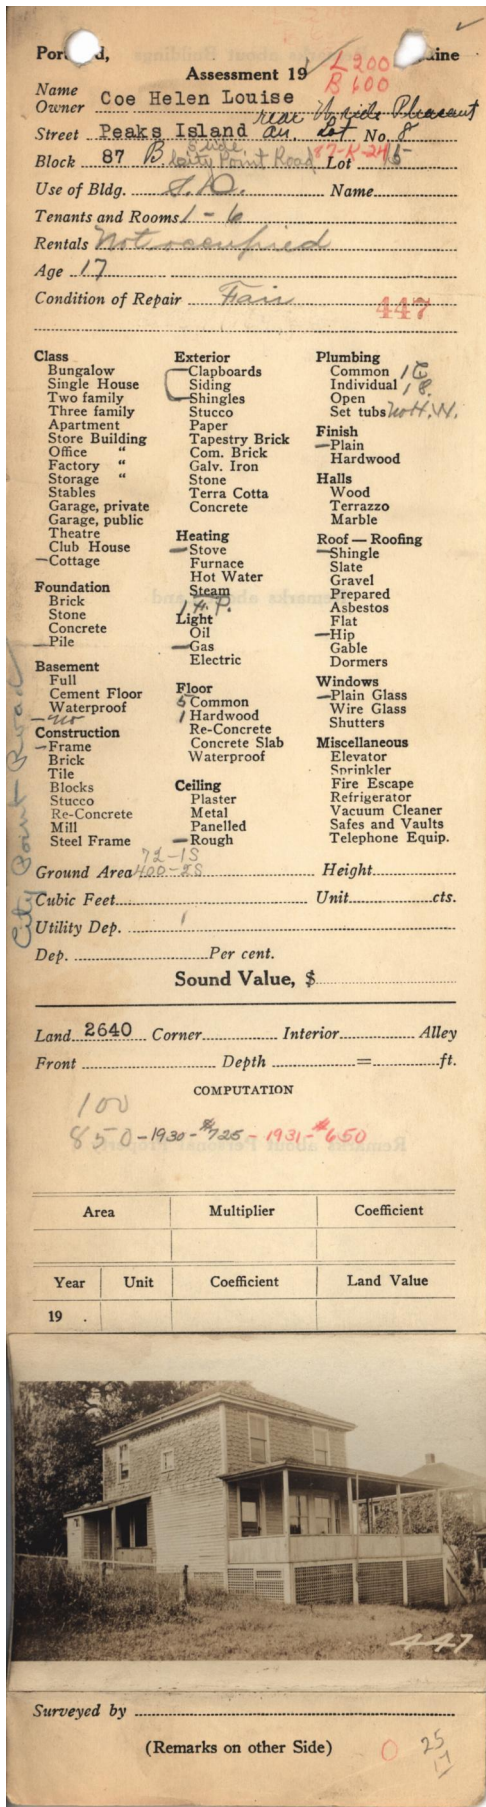 Portland, Maine
Assessment 19
L 200
B 600
Name
Owner Coe Helen Louise
rear N side Pleasant
Street Peaks Island av. Lot No. 8
Block 87 B City Point Road Lot 15
87-K-24
Use of Bldg. S.D. Name
Tenants and Rooms 1-6
Rentals Not occupied
Age 17
Condition of Repair Fair
447
Class
Bungalow
Single House
Two family
Three family
Apartment
Store Building
Office "
Factory "
Storage "
Stables
Garage, private
Garage, public
Theatre
Club House
Cottage
Foundation
Brick
Stone
Concrete
Pile
Basement
Full
Cement Floor
Waterproof
no
Construction
Frame
Brick
Tile
Blocks
Stucco
Re-Concrete
Mill
Steel Frame
Exterior
Clapboards
Siding
Shingles
Stucco
Paper
Tapestry Brick
Com. Brick
Galv. Iron
Stone
Terra Cotta
Concrete
Heating
Stove
Furnace
Hot Water
Steam
1 F.P.
Light
Oil
Gas
Electric
Floor
5 Common
1 Hardwood
Re-Concrete
Concrete Slab
Waterproof
Ceiling
Plaster
Metal
Panelled
Rough
Plumbing
Common 1 C
Individual 1 S.
Open
Set tubs no H.W.
Finish
Plain
Hardwood
Halls
Wood
Terrazzo
Marble
Roof — Roofing
Shingle
Slate
Gravel
Prepared
Asbestos
Flat
Hip
Gable
Dormers
Windows
Plain Glass
Wire Glass
Shutters
Miscellaneous
Elevator
Sprinkler
Fire Escape
Refrigerator
Vacuum Cleaner
Safes and Vaults
Telephone Equip.
City Point Road
72-1S
Ground Area 400-2S Height
Cubic Feet Unit cts.
Utility Dep. 1
Dep. Per cent.
Sound Value, $
Land 2640 Corner Interior Alley
Front Depth = ft.
COMPUTATION
100
850-1930-$725-1931-$650
Area Multiplier Coefficient
Year Unit Coefficient Land Value
19 .
447
Surveyed by
(Remarks on other Side)
O 25
17